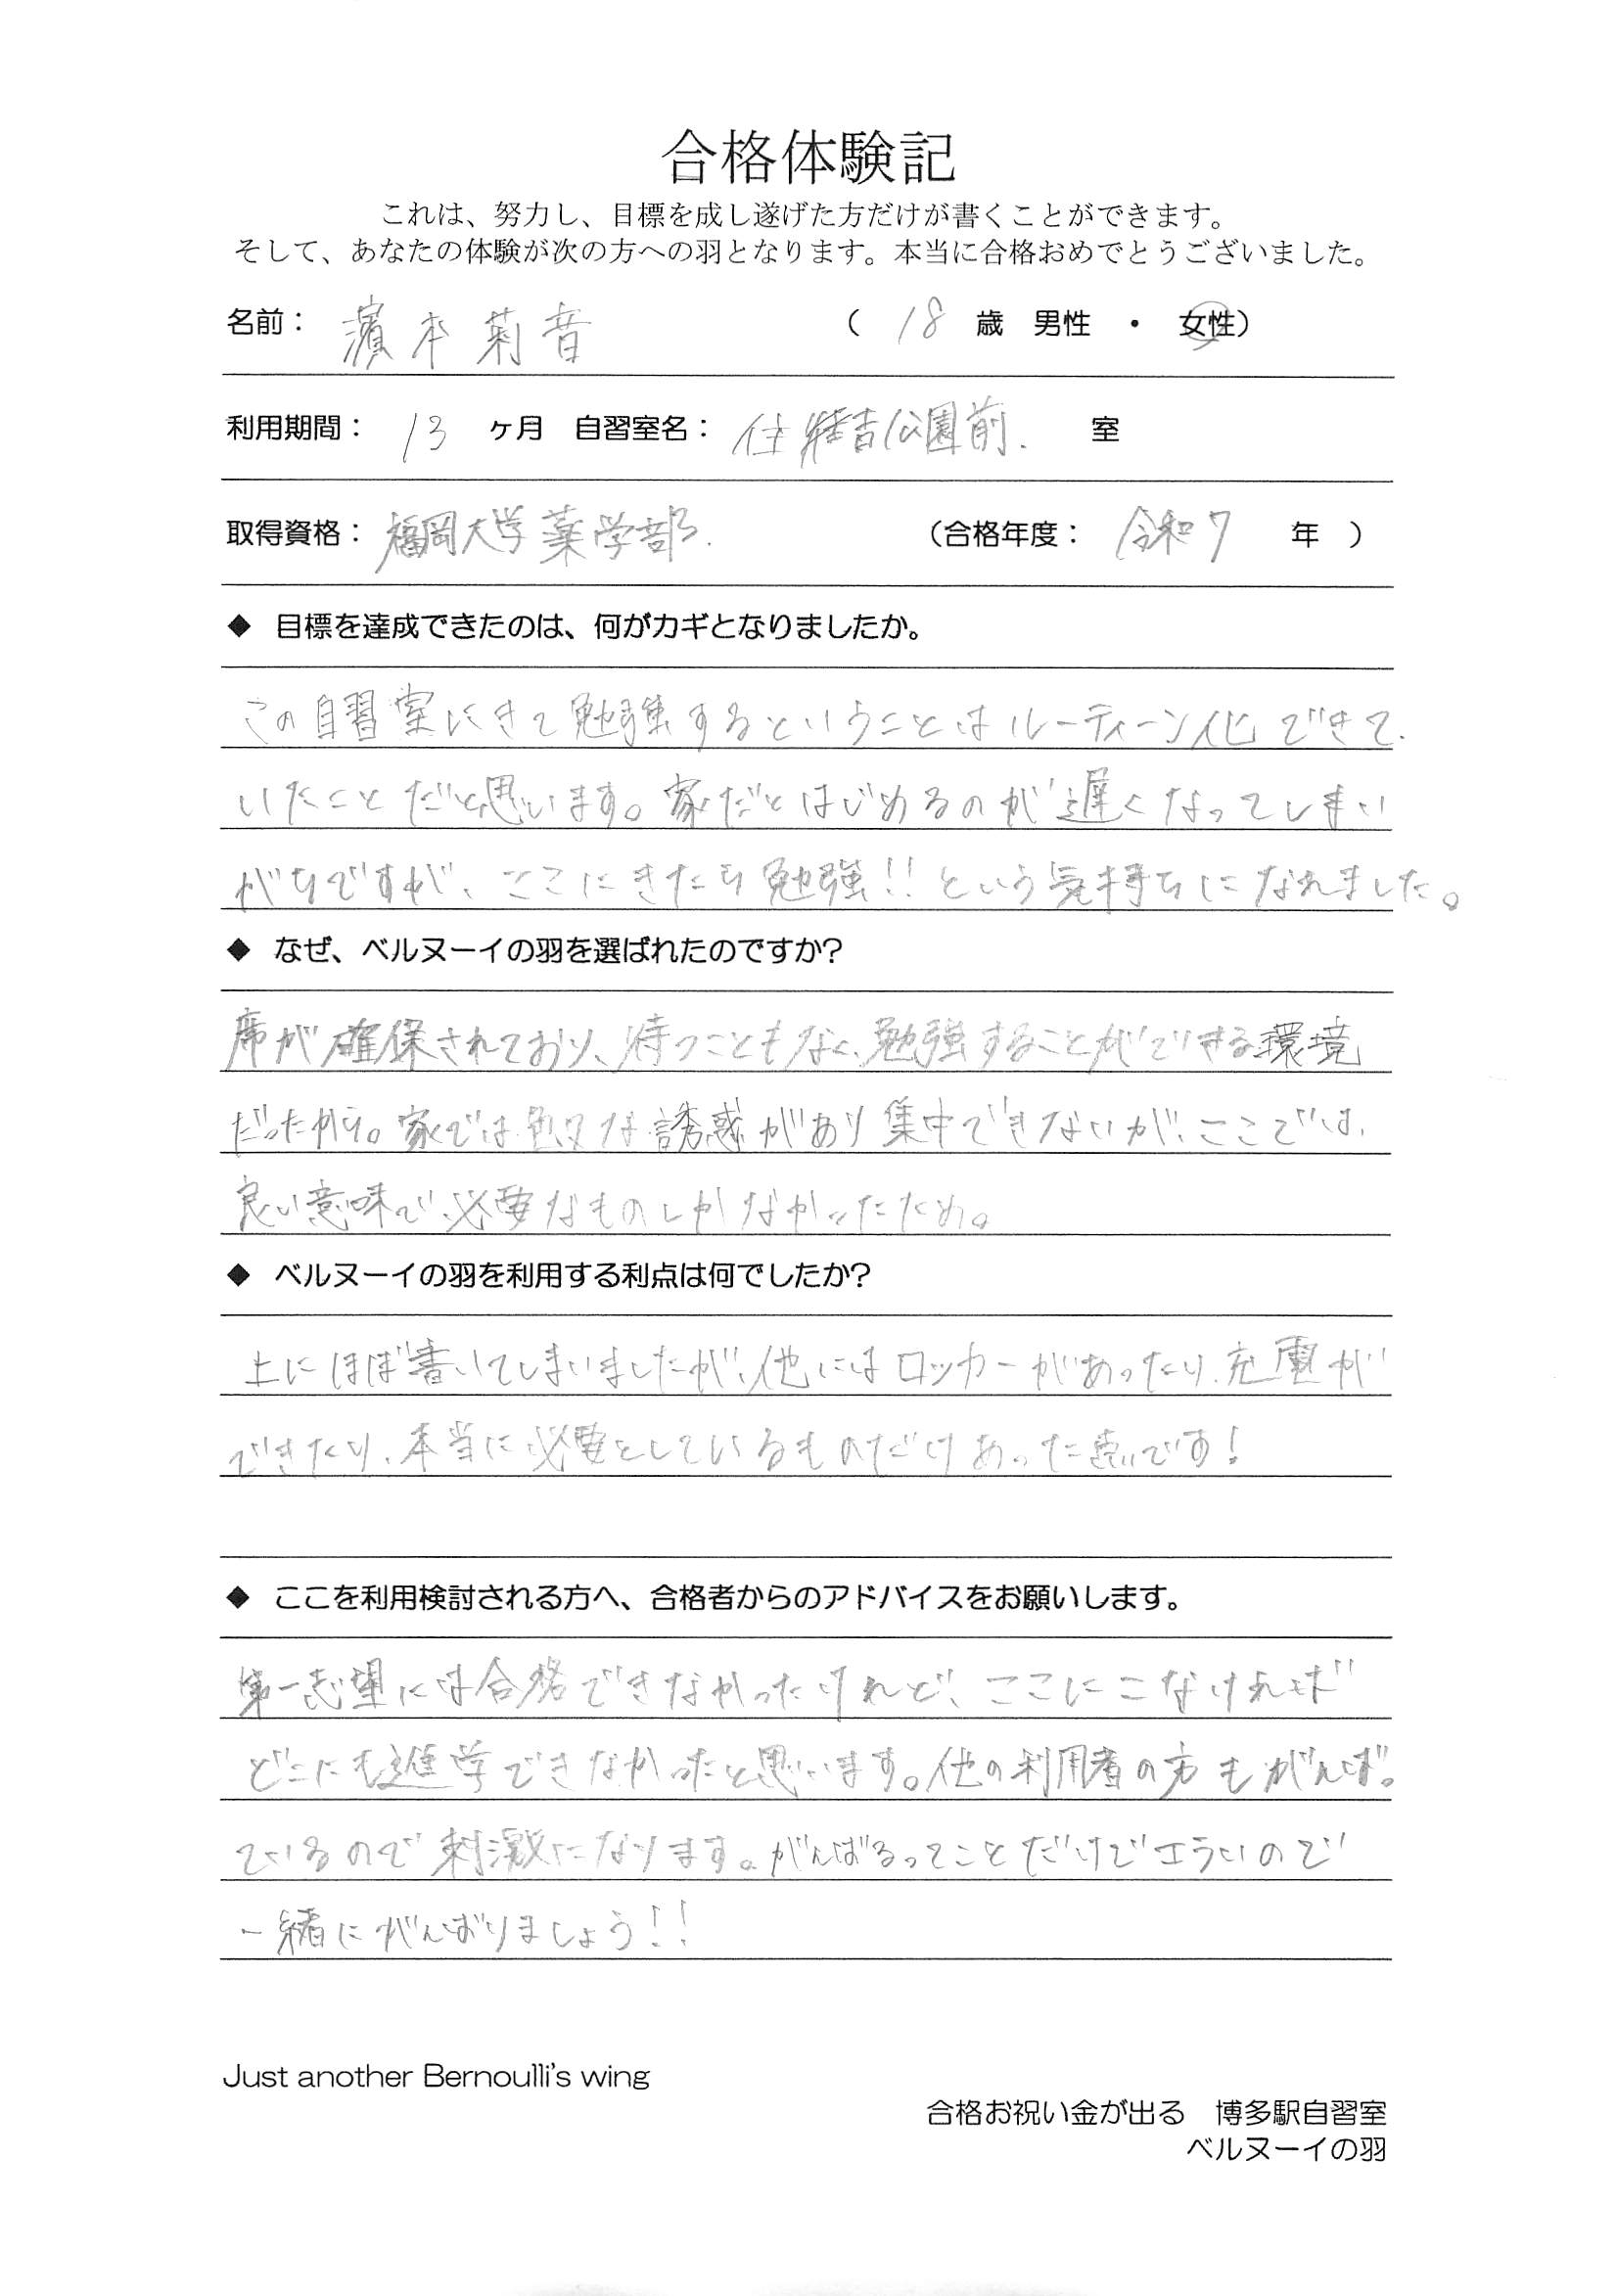 合格体験記
これは、努力し、目標を成し遂げた方だけが書くことができます。
そして、あなたの体験が次の方への羽となります。本当に合格おめでとうございました。
名前： 濱本 莉音 （ 18 歳 男性 ・ 女性）
利用期間： 13 ヶ月 自習室名： 住吉公園前. 室
取得資格： 福岡大学薬学部. （合格年度： 令和7 年 ）
◆ 目標を達成できたのは、何がカギとなりましたか。
この自習室にきて勉強するということはルーティーン化できて
いたことだと思います。家だとはじめるのが遅くなってしまい
がちですが、ここにきたら勉強!!という気持ちになれました。
◆ なぜ、ベルヌーイの羽を選ばれたのですか?
席が確保されており、待つこともなく、勉強することができる環境
だったから。家では色々な誘惑があり集中できないが、ここでは、
良い意味で必要なものしかなかったため。
◆ ベルヌーイの羽を利用する利点は何でしたか?
上にほぼ書いてしまいましたが、他にはロッカーがあったり、充電が
できたり、本当に必要としているものだけあった点です!
◆ ここを利用検討される方へ、合格者からのアドバイスをお願いします。
第一志望には合格できなかったけれど、ここにこなければ
どこにも進学できなかったと思います。他の利用者の方もがんば
ているので刺激になります。がんばるってことだけでエラいので
一緒にがんばりましょう!!
Just another Bernoulli's wing
合格お祝い金が出る 博多駅自習室
ベルヌーイの羽